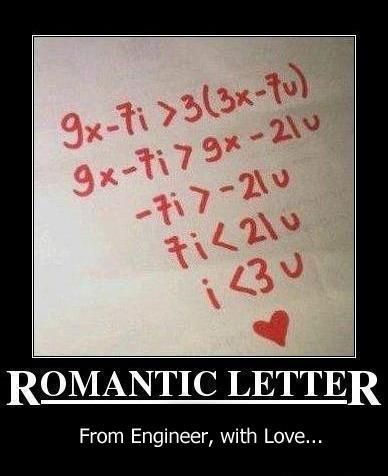 9x-7i > 3(3x-7u)
9x-7i > 9x - 21u
-7i > -21u
7i < 21u
i <3 u
ROMANTIC LETTER
From Engineer, with Love...